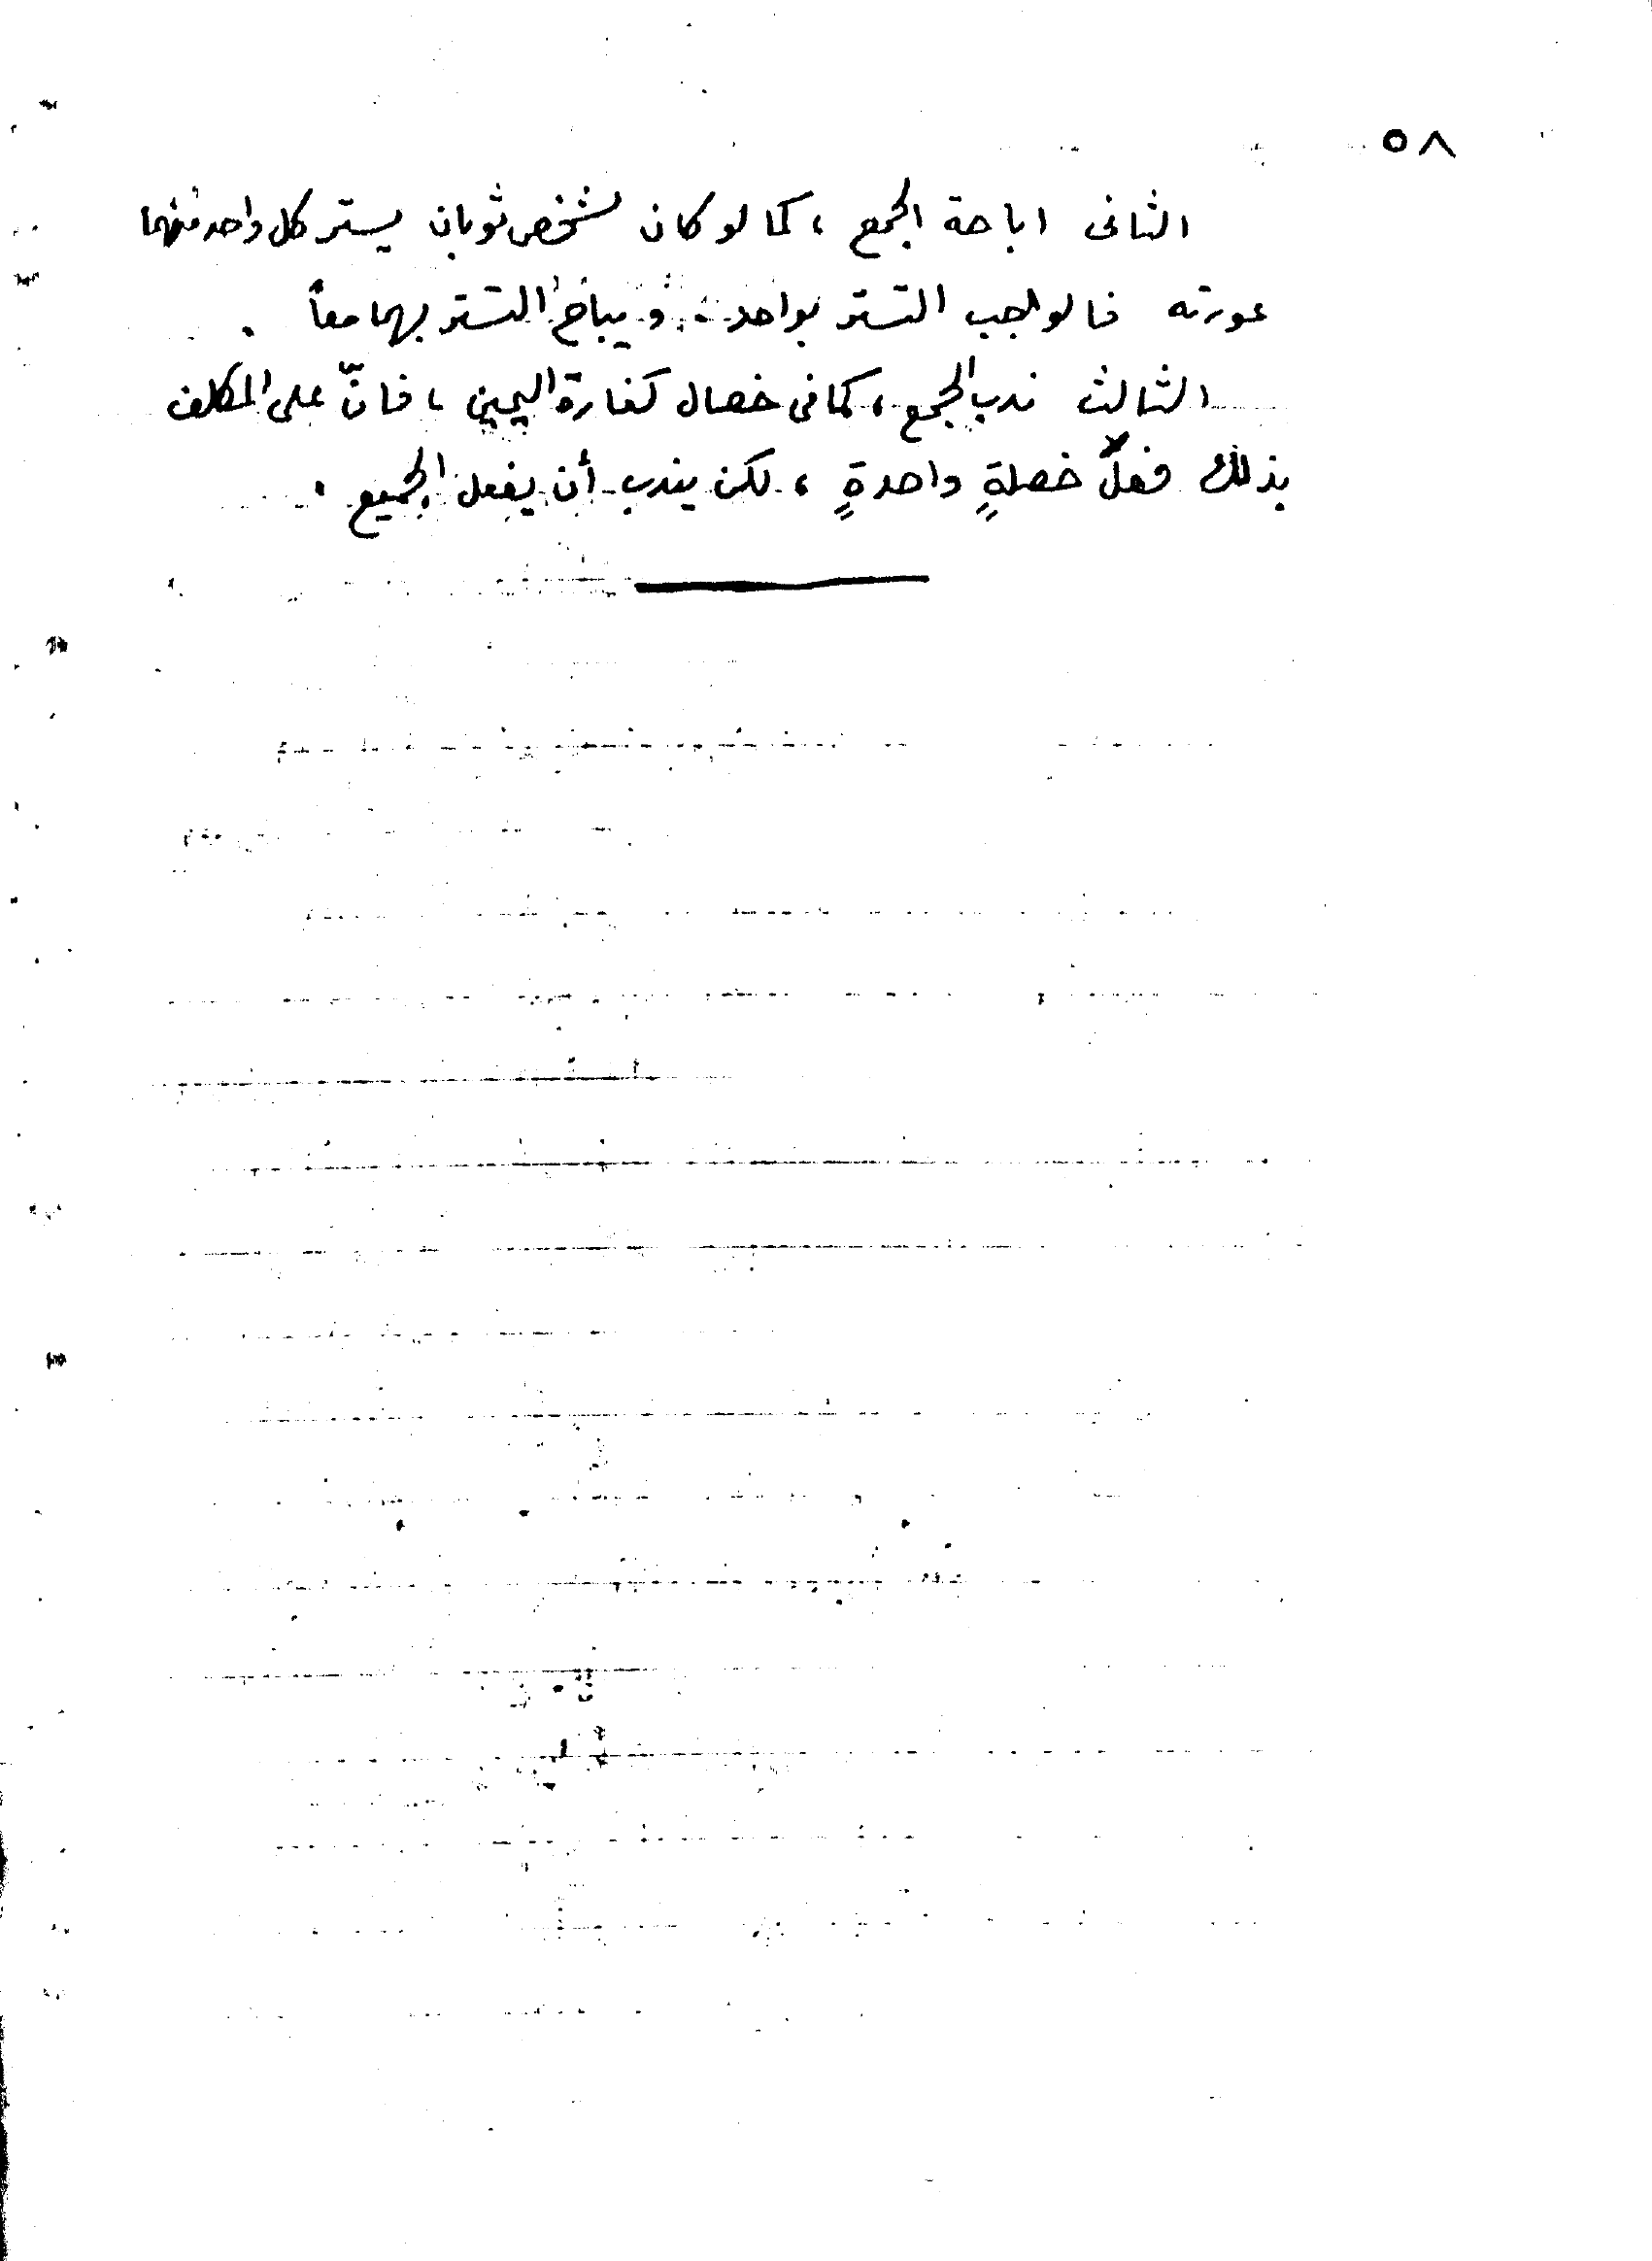 ٥٨
الثانى اباحة الجمع ، كما لو كان لشخص ثوبان يستر كل واحد منهما
عورته فالواجب التستر بواحد ، و يباح التستر بهما معاً .
الثالث ندب الجمع ، كما فى خصال كفارة اليمين ، فانّ على المكلف
بذلك فعل خصلةٍ واحدةٍ ، لكن يندب أن يفعل الجميع .